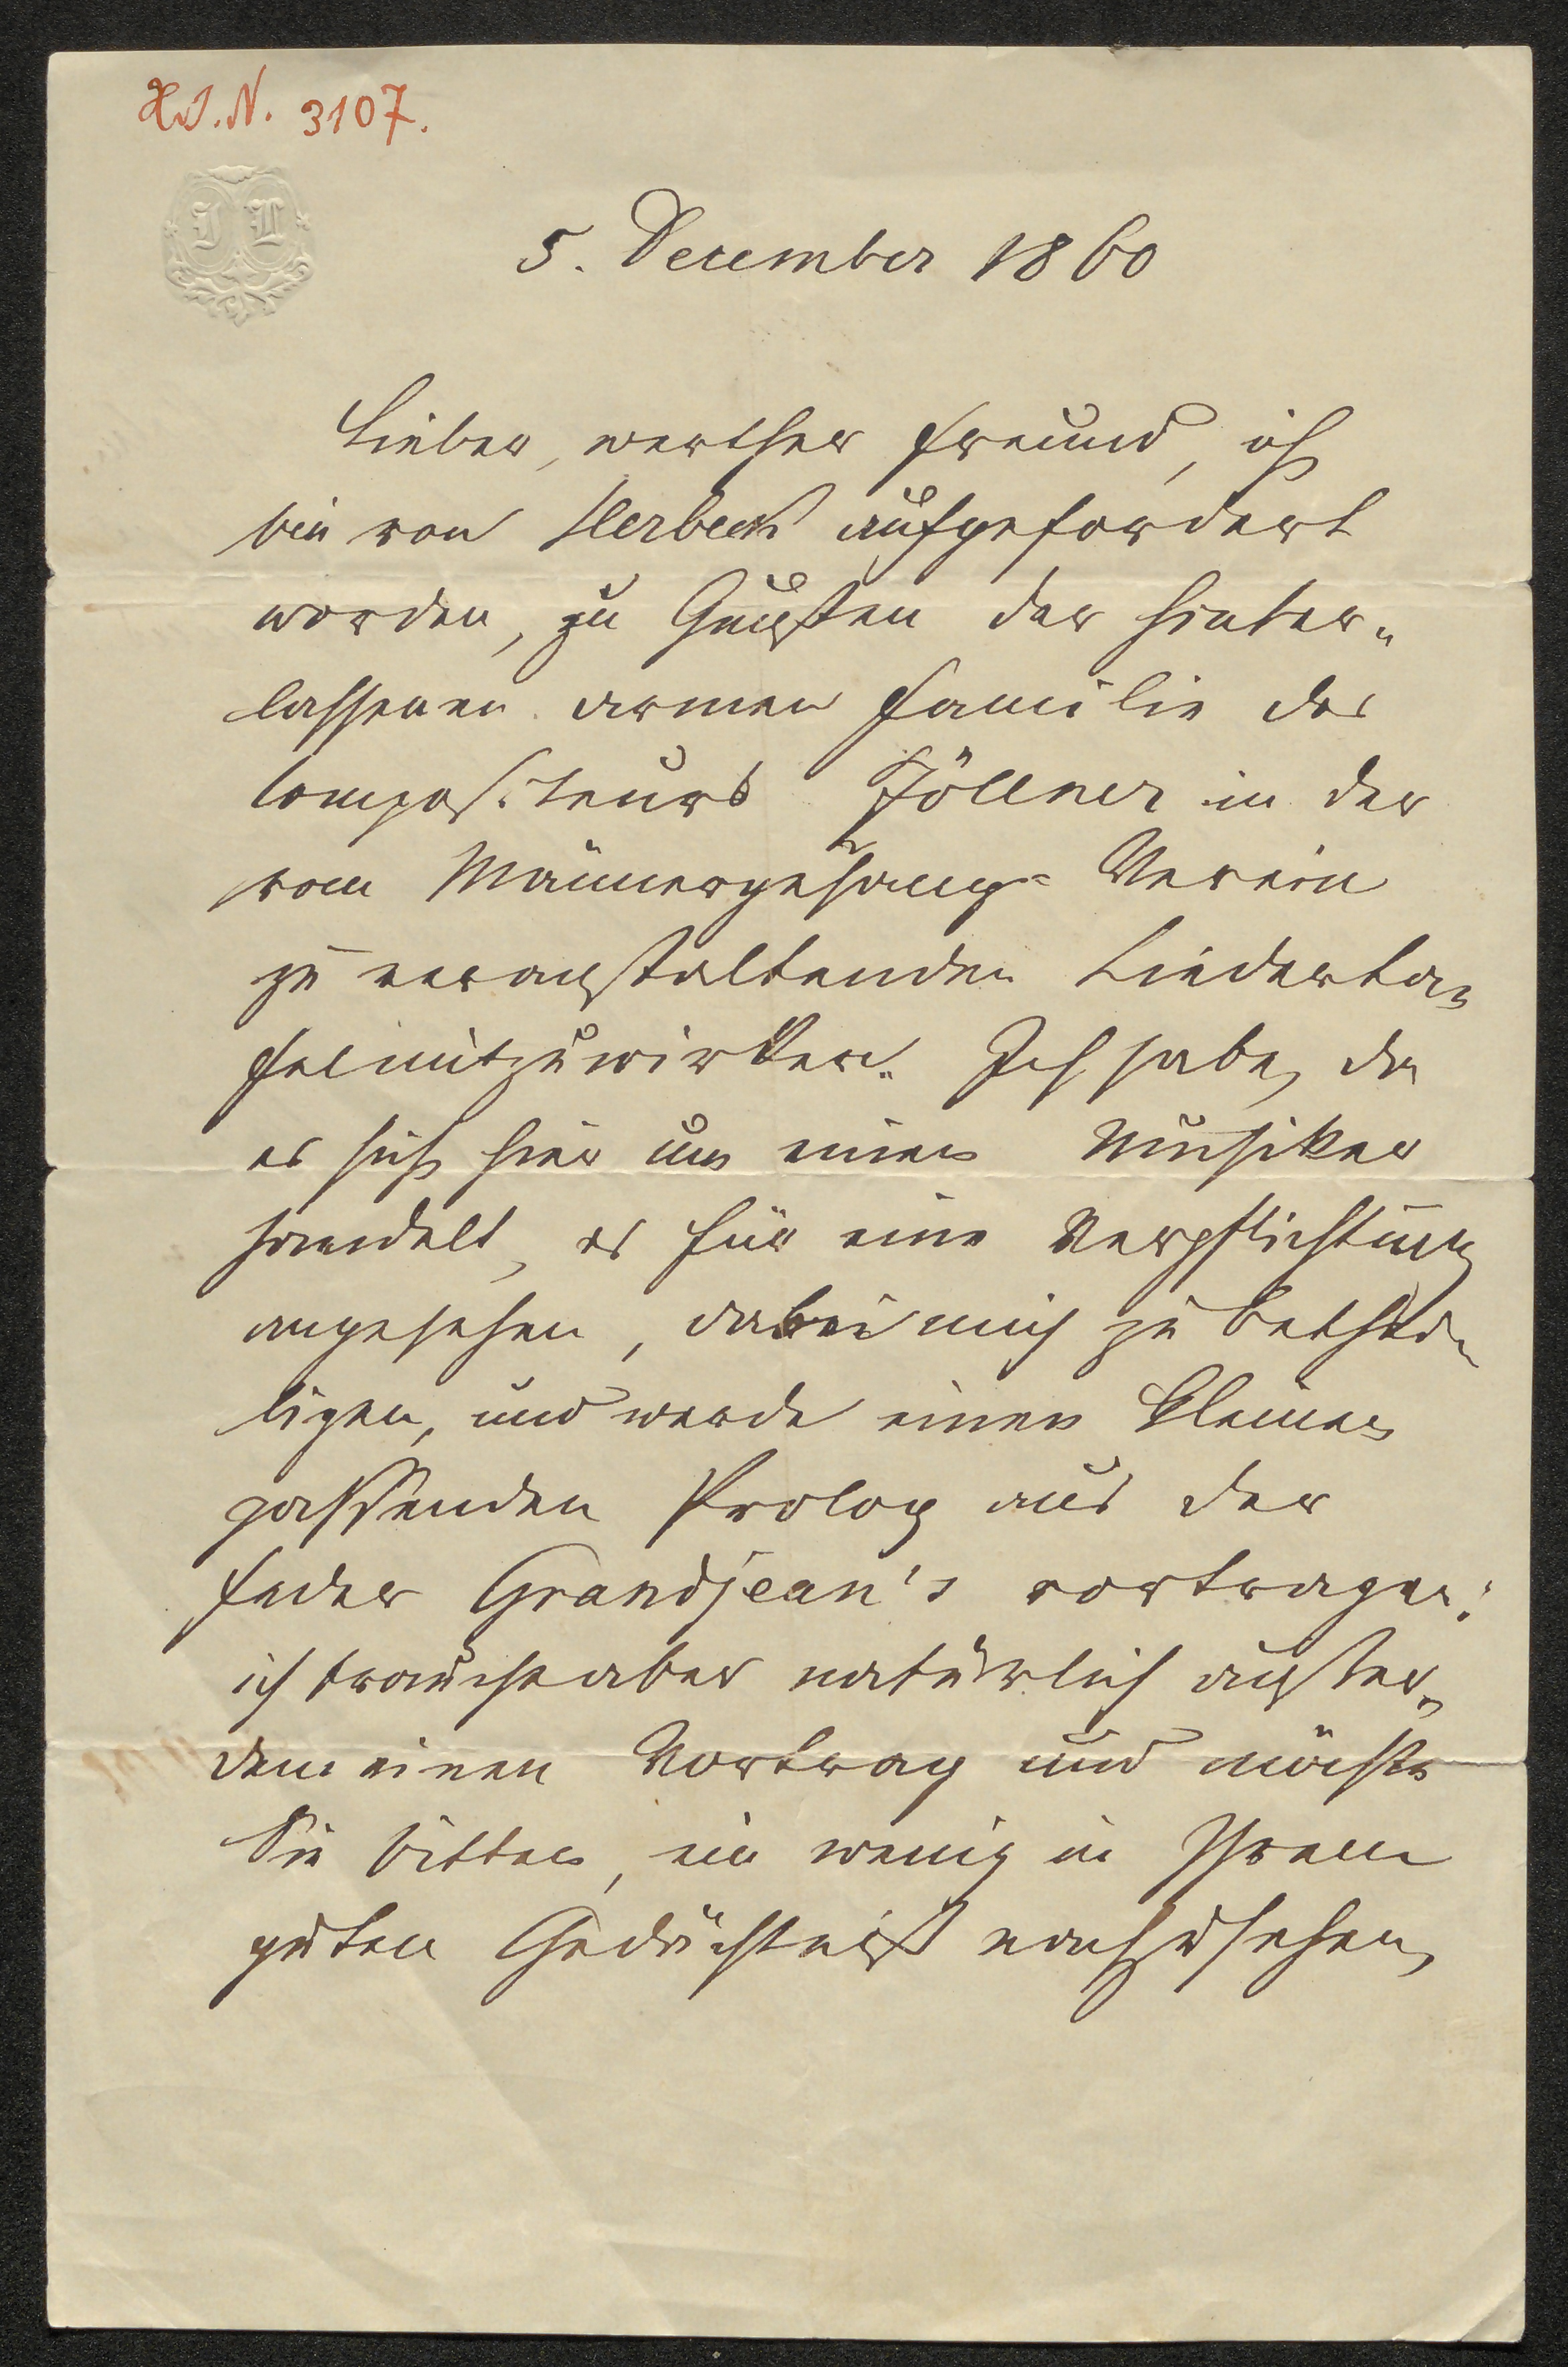 H.I.N. 3107.
I L
5. December 1860
Lieber, werther Freund, ich
bin von Herbeck aufgefordert
worden, zu Gunsten der hinter-
lassenen armen Familie des
Compositeurs Zöllner in der
vom Männergesang-Verein
zu veranstaltenden Liederta-
fel mitzuwirken. Ich habe, da
es sich hier um einen Musiker
handelt, es für eine Verpflichtung
angesehen, dabei mich zu bethei-
ligen, und werde einen kleinen
passenden Prolog aus der
Feder Grandjean's vortragen;
ich brauche aber natürlich außer-
dem einen Vortrag und möchte
Sie bitten, ein wenig in Ihrem
guten Gedächtniß nachzusehen,